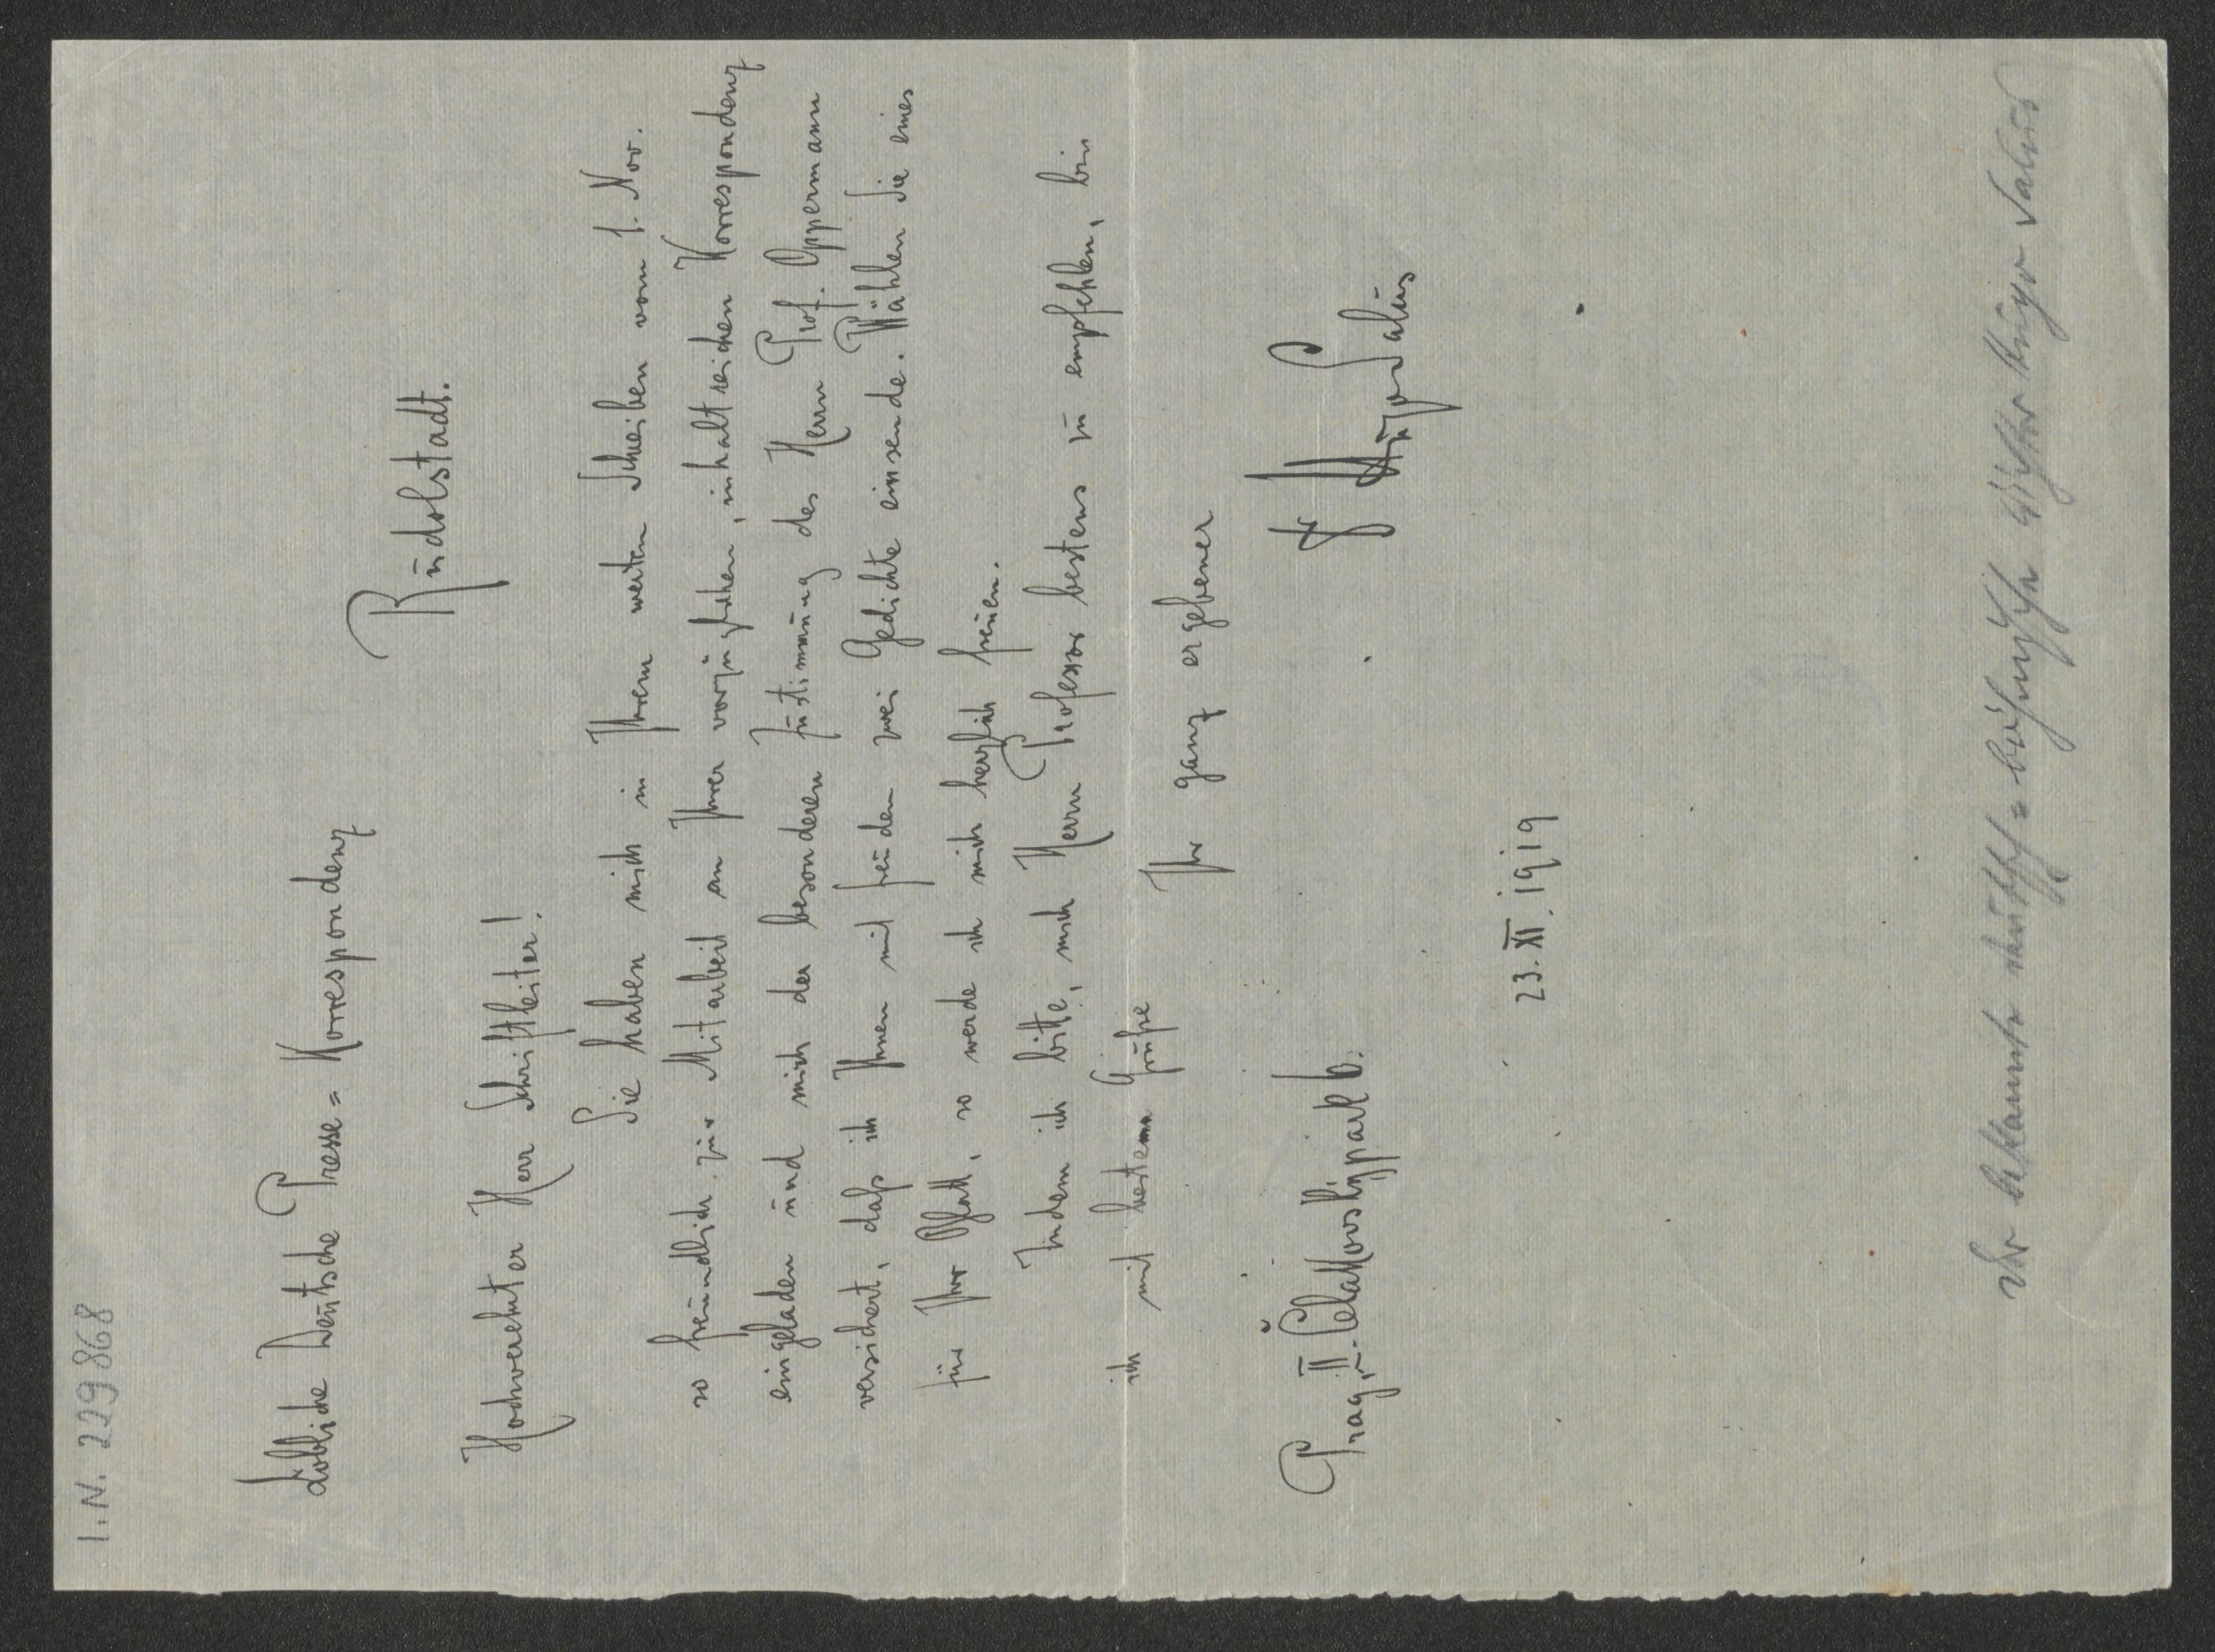 I.N. 229868
Löbliche Deutsche Presse=Korrespondenz
Rudolstadt.
Hochverehrter Herr Schriftleiter!
Sie haben mich in Ihrem werten Schreiben vom 1. Nov.
so freundlich zur Mitarbeit an Ihrer vorzüglichen, inhaltreichen Korrespondenz
eingeladen und mich der besonderen Zustimmung des Herrn Prof. Oppermann
versichert, daß ich Ihnen mit Freuden zwei Gedichte einsende. Wählen Sie eines
für Ihr Blatt, so werde ich mich herzlich freuen.
Indem ich bitte, mich Herrn Professor bestens zu empfehlen, bin
ich mit bestem Gruße
Ihr ganz ergebener
Dr Hugo Salus
Prag, II. Čelakovskypark 6.
23.XI.1919
Der bekannte deutsch=böhmische Dichter Hugo Salus